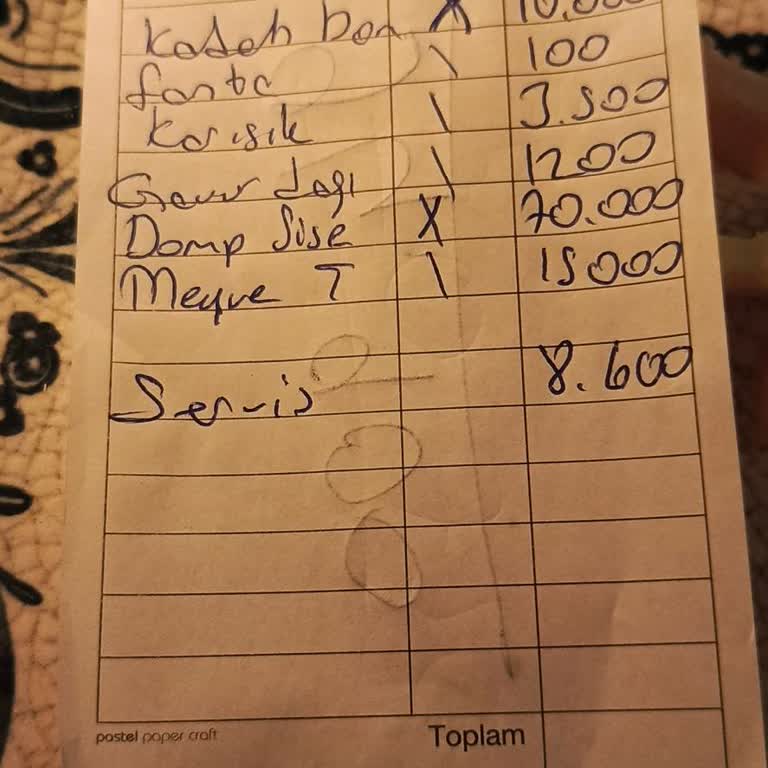 Kadeh Dom X 10.000
fanta \ 100
Karışık \ 3.500
Gavur dağı \ 1200
Domp Şişe X 70.000
Meyve T \ 15000
Servis 8.600
pastel paper craft Toplam